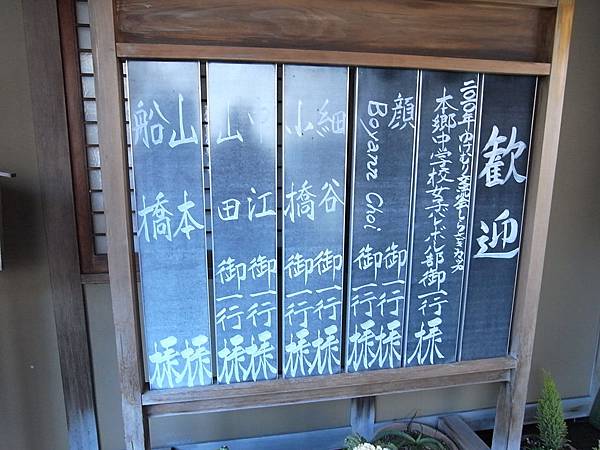 歓迎
本郷中学校女子バレーボール部御一行様
顔 御一行様
Boyann Choi 御一行様
細谷 御一行様
小橋 御一行様
中江 御一行様
山田 御一行様
山本 様
船橋 様